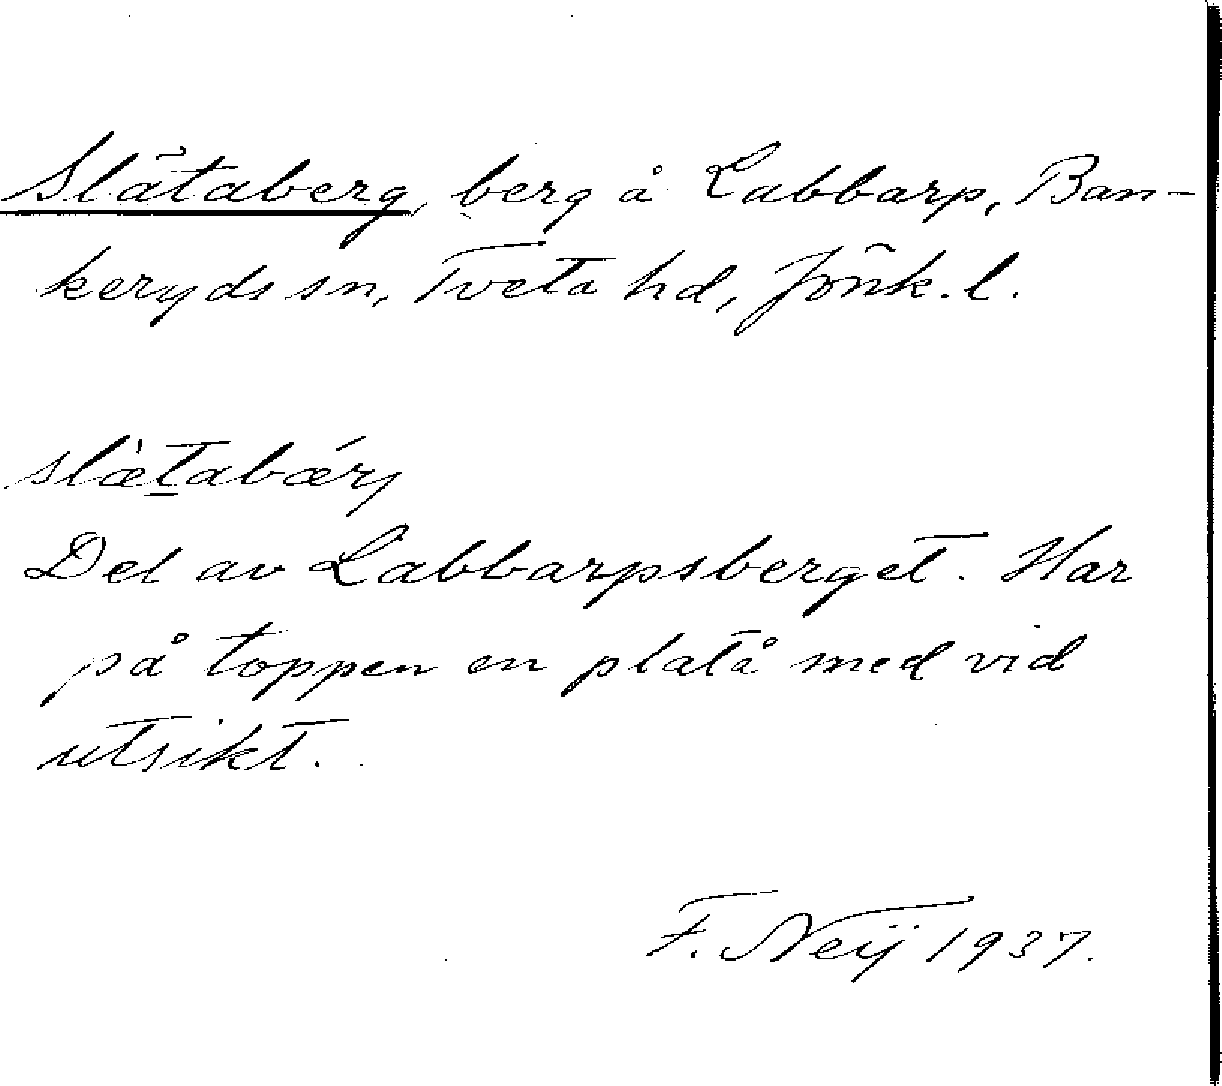 Slätaberg, berg å Labbarp, Ban-
keryds sn, Tveta hd, Jönk. l.
slæ̀tabǽrj
Del av Labbarpsberget. Har
på toppen en platå med vid
utsikt.
F. Neij 1937.